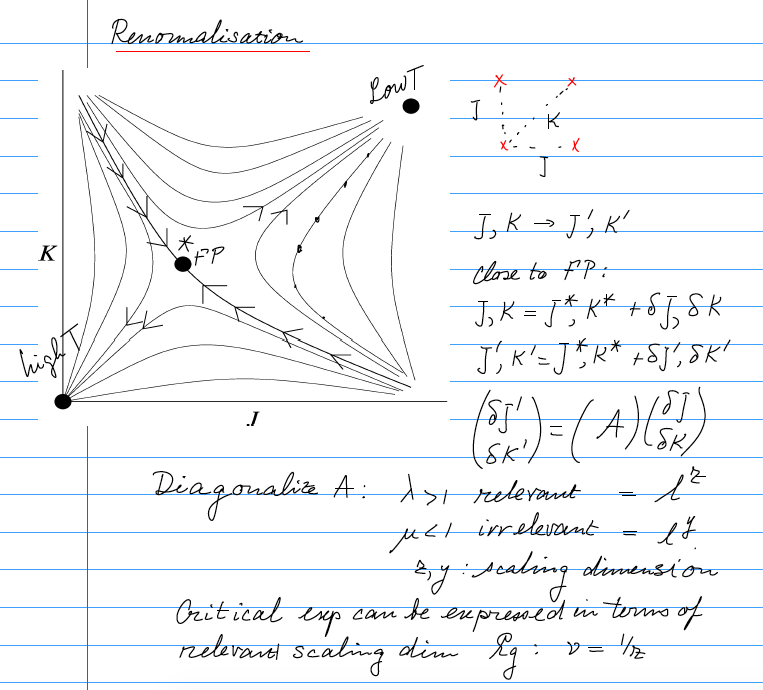 Renormalisation
Low T
K
* FP
high T
J
J
K
J
J, K → J', K'
close to FP:
J, K = J*, K* + δJ, δK
J', K' = J*, K* + δJ', δK'
(δJ' δK') = (A)(δJ δK)
Diagonalize A: λ>1 relevant = l^z
μ<1 irrelevant = l^y
z, y : scaling dimension
Critical exp can be expressed in terms of
relevant scaling dim Eg: ν = 1/z